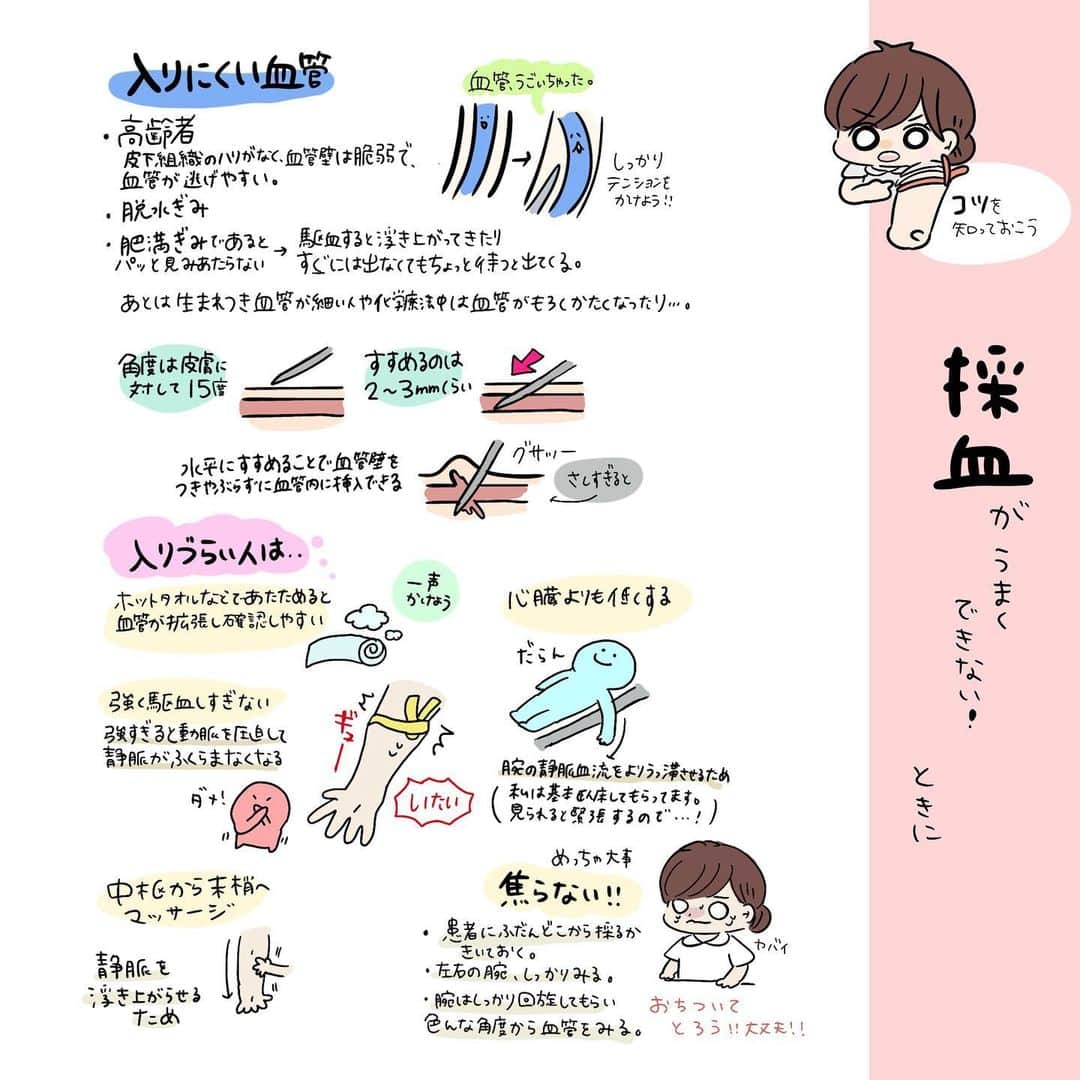 採血がうまくできない！ときに
コツを
知っておこう
入りにくい血管
・高齢者
皮下組織のハリがなく、血管壁は脆弱で、
血管が逃げやすい。
・脱水ぎみ
・肥満ぎみであると
パッと見みあたらない
→ 駆血すると浮き上がってきたり
すぐには出なくてもちょっと待つと出てくる。
あとは生まれつき血管が細い人や化学療法中は血管がもろくかたくなったり…。
血管、うごいちゃった。
しっかり
テンションを
かけよう!!
角度は皮膚に
対して15度
すすめるのは
2〜3mmくらい
水平にすすめることで血管壁を
つきやぶらずに血管内に挿入できる
グサッー
さしすぎると
入りづらい人は..
ホットタオルなどであたためると
血管が拡張し確認しやすい
一声
かけなう
心臓よりも低くする
だらん
腕の静脈血流をよりうっ滞させるため
(私は基本臥床してもらってます。
見られると緊張するので…！)
強く駆血しすぎない
強すぎると動脈を圧迫して
静脈がふくらまなくなる
ダメ！
ギュー
いたい
中枢から末梢へ
マッサージ
静脈を
浮き上がらせる
ため
めっちゃ大事
焦らない!!
・患者にふだんどこから採るか
きいておく。
・左右の腕、しっかりみる。
・腕はしっかり回旋してもらい
色んな角度から血管をみる。
ヤバイ
おちついて
とろう!!大丈夫!!